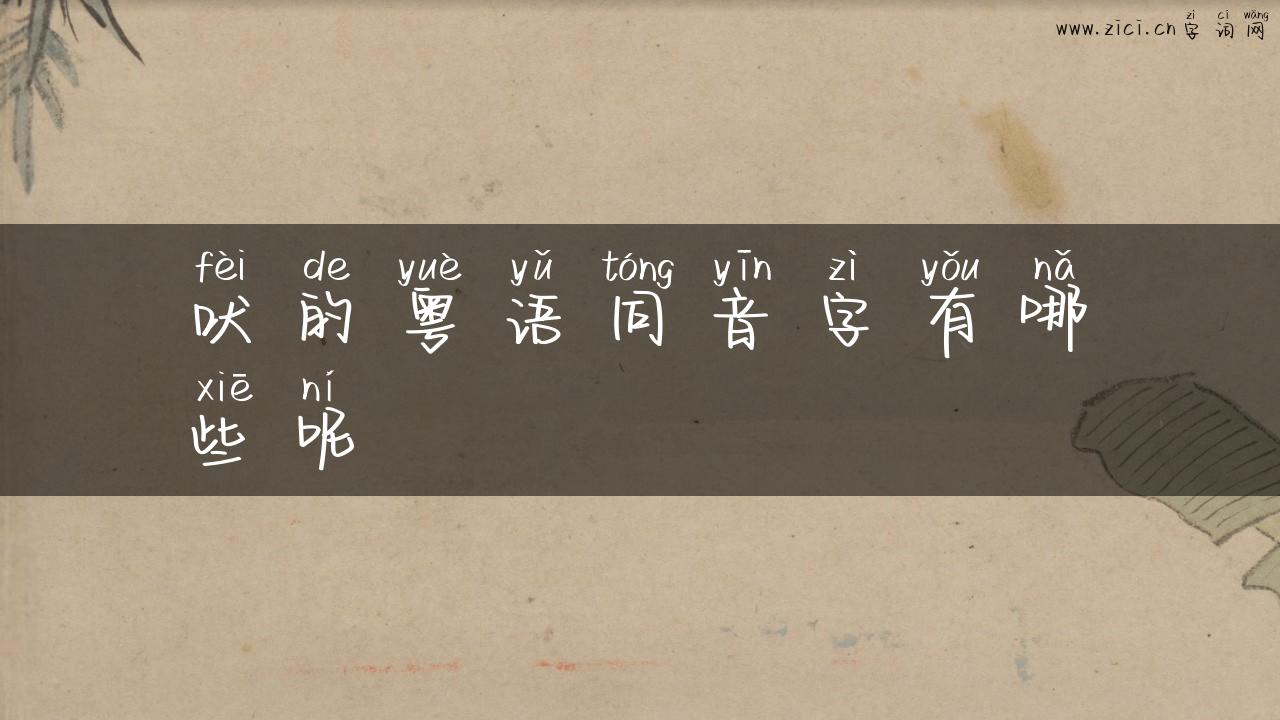 zì cí wǎng
www.zici.cn 字词网
fèi de yuè yǔ tóng yīn zì yǒu nǎ
吠的粤语同音字有哪
xiē ní
些呢